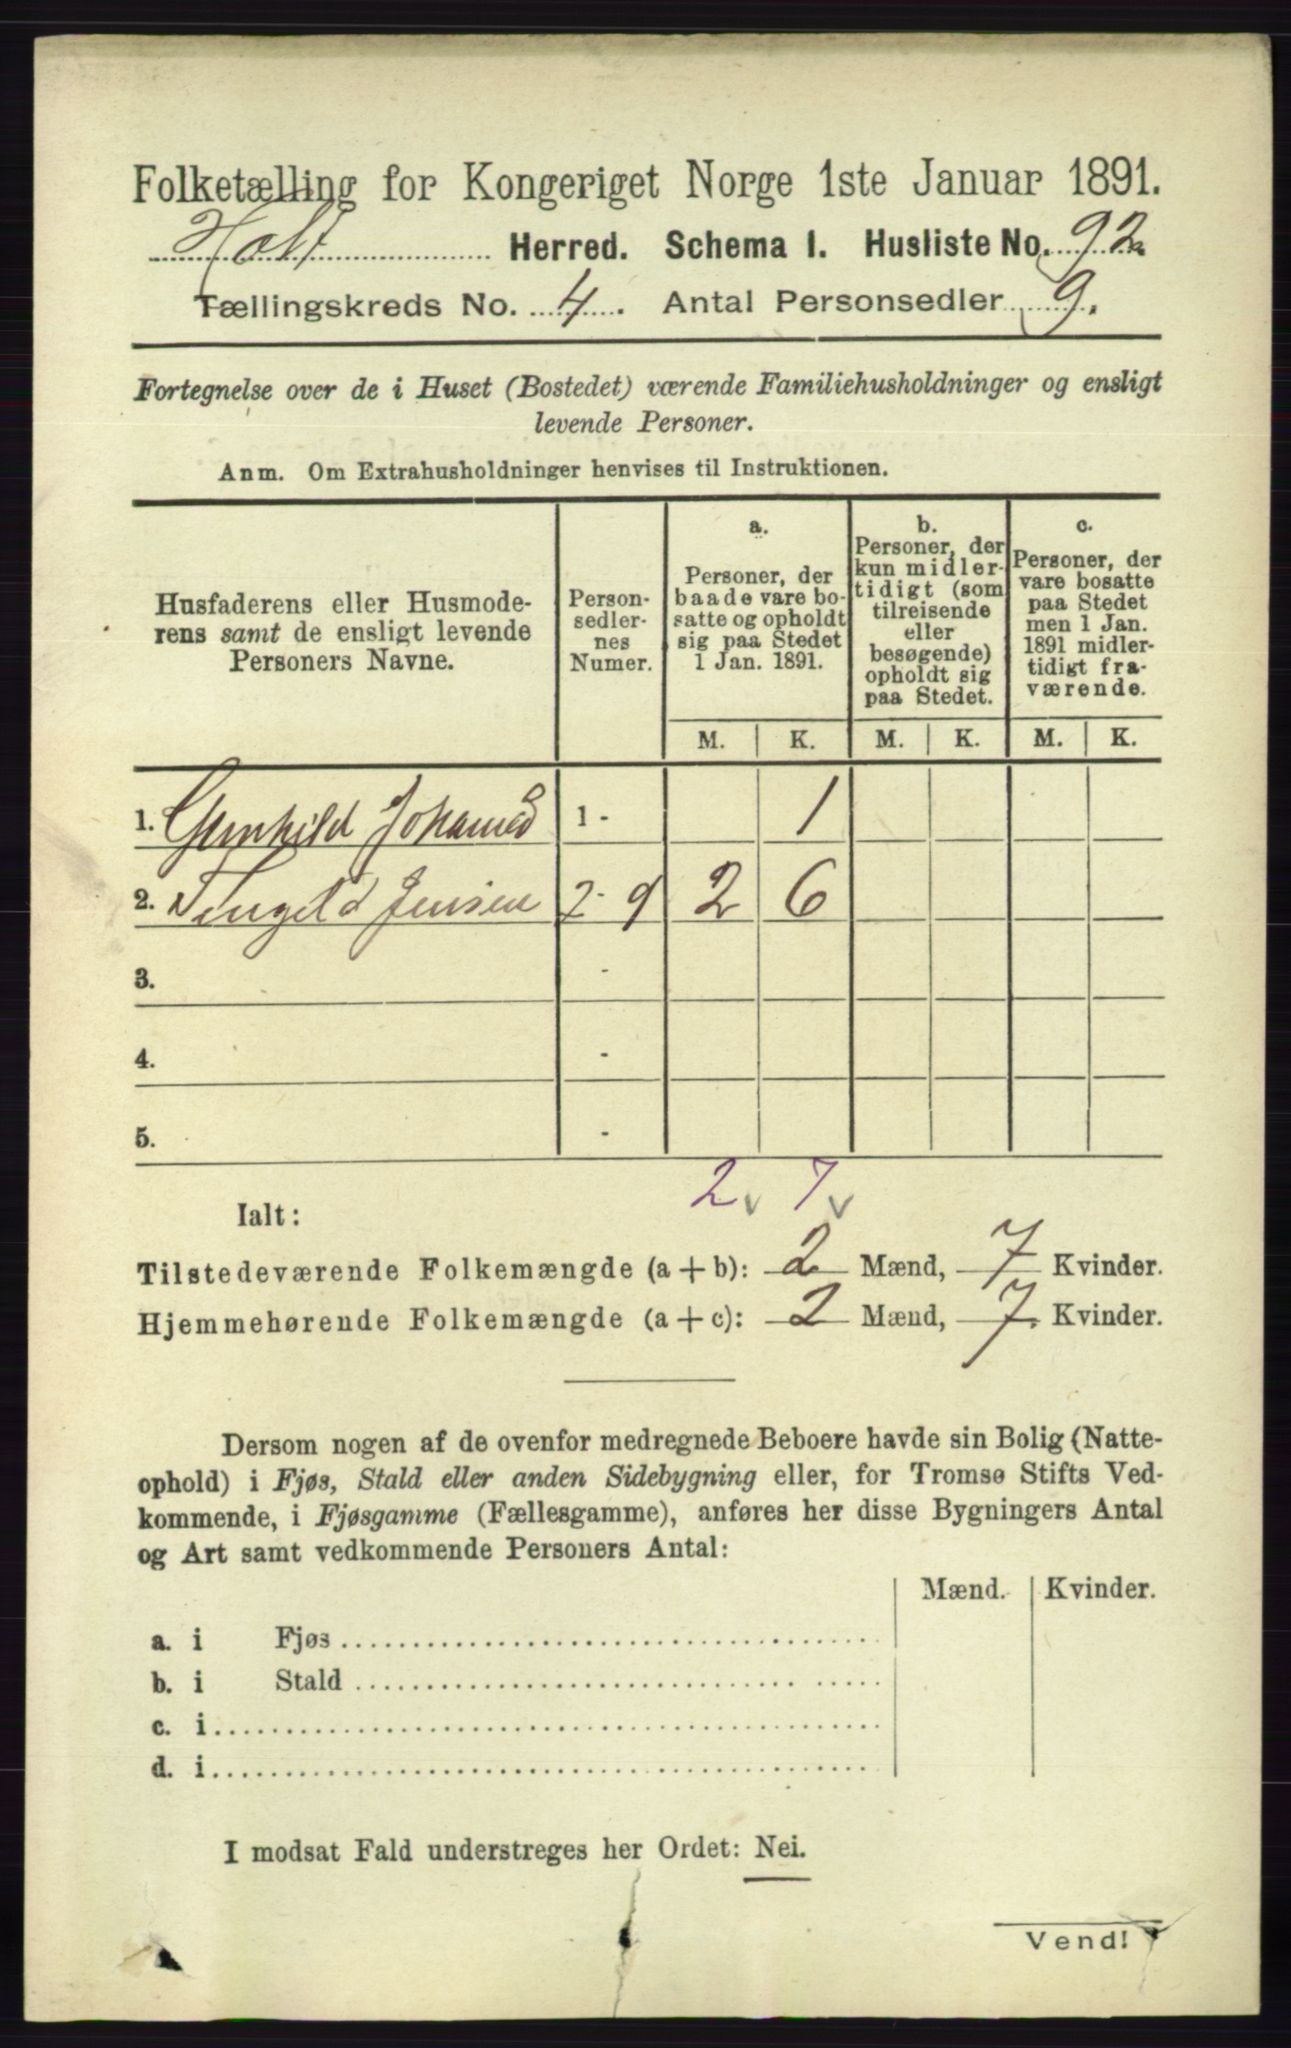 Folketælling for Kongeriget Norge 1ste Januar 1891.
Holt Herred. Schema I. Husliste No. 92
Tællingskreds No. 4. Antal Personsedler 9.
Fortegnelse over de i Huset (Bostedet) værende Familiehusholdninger og ensligt
levende Personer.
Anm. Om Extrahusholdninger henvises til Instruktionen.
Husfaderens eller Husmode-
rens samt de ensligt levende
Personers Navne.
Person-
sedler-
nes
Numer.
a.
Personer, der
baade vare bo-
satte og opholdt
sig paa Stedet
1 Jan. 1891.
b.
Personer, der
kun midler-
tidigt (som
tilreisende
eller
besøgende)
opholdt sig
paa Stedet.
c.
Personer, der
vare bosatte
paa Stedet
men 1 Jan.
1891 midler-
tidigt fra-
værende.
M. K. M. K. M. K.
1. Gunhild 1 - 1
2. Jensen 2 - 9 2 6
3. -
4. -
5. -
2 v 7 v
Ialt:
Tilstedeværende Folkemængde (a + b): 2 Mænd, 7 Kvinder.
Hjemmehørende Folkemængde (a + c): 2 Mænd, 7. Kvinder.
Dersom nogen af de ovenfor medregnede Beboere havde sin Bolig (Natte-
ophold) i Fjøs, Stald eller anden Sidebygning eller, for Tromsø Stifts Ved-
kommende, i Fjøsgamme (Fællesgamme), anføres her disse Bygningers Antal
og Art samt vedkommende Personers Antal:
Mænd. Kvinder.
a. i Fjøs
b. i Stald
c. i
d. i
I modsat Fald understreges her Ordet: Nei.
Vend!